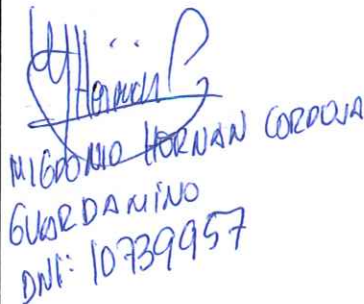 MIGDONIO HERNAN CORDOVA
GUARDAMINO
DNI: 10739957